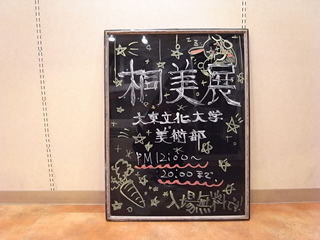 桐美展
大東文化大学
美術部
PM12:00〜
20:00まで
入場無料です